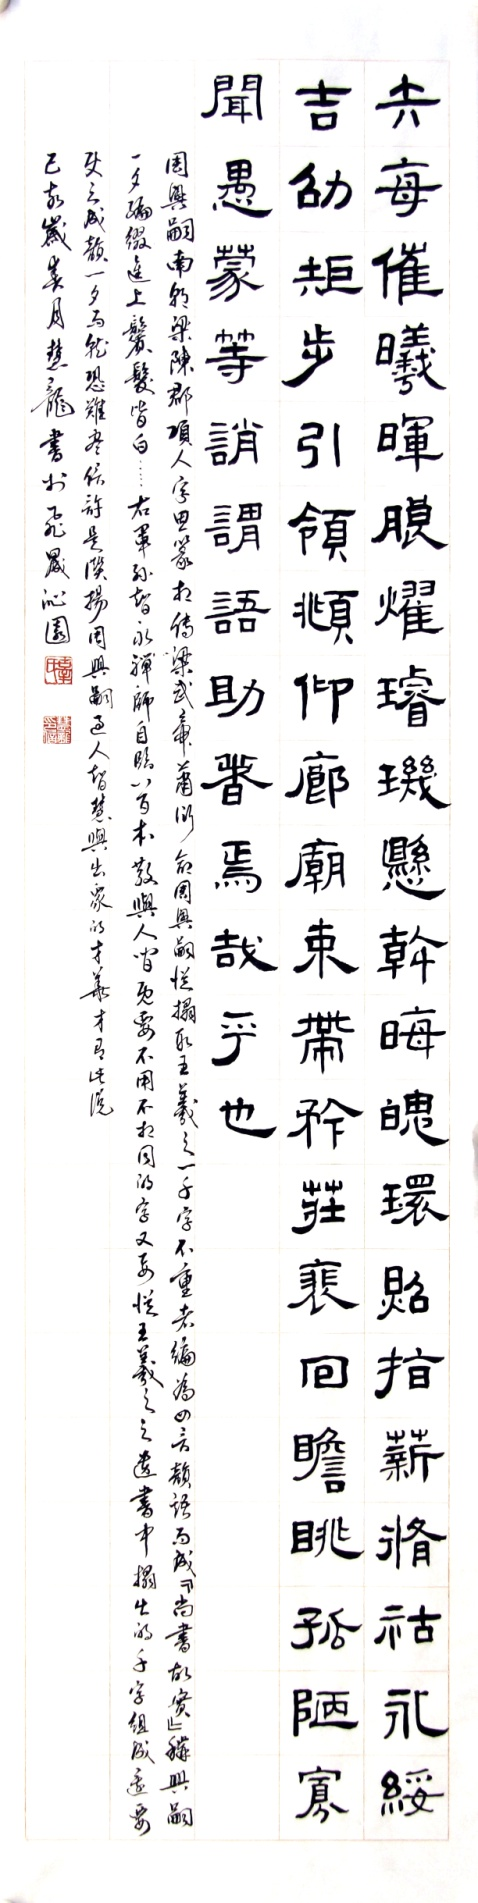 矢每催曦暉朗耀璿璣懸斡晦魄環照指薪脩祜永綏
吉劭矩步引領頫仰廊廟束帶矜莊裴回瞻眺孤陋寡
聞愚蒙等誚謂語助者焉哉乎也
周興嗣南朝梁陳郡項人字思纂相傳梁武帝蕭衍命周興嗣從搨取王羲之一千字不重者編為四言韻語而成『尚書故實』稱興嗣
一夕編綴進上鬢髮皆白……右軍孫智永禪師自臨八百本散與人間既要不用不相同的字又要從王羲之之遺書中搨出的千字組成還要
使之成韻一夕而就恐難免信許是讚揚周興嗣過人智慧與出眾的才華才有此說
己亥歲春月慧龍書於飛晟沁園